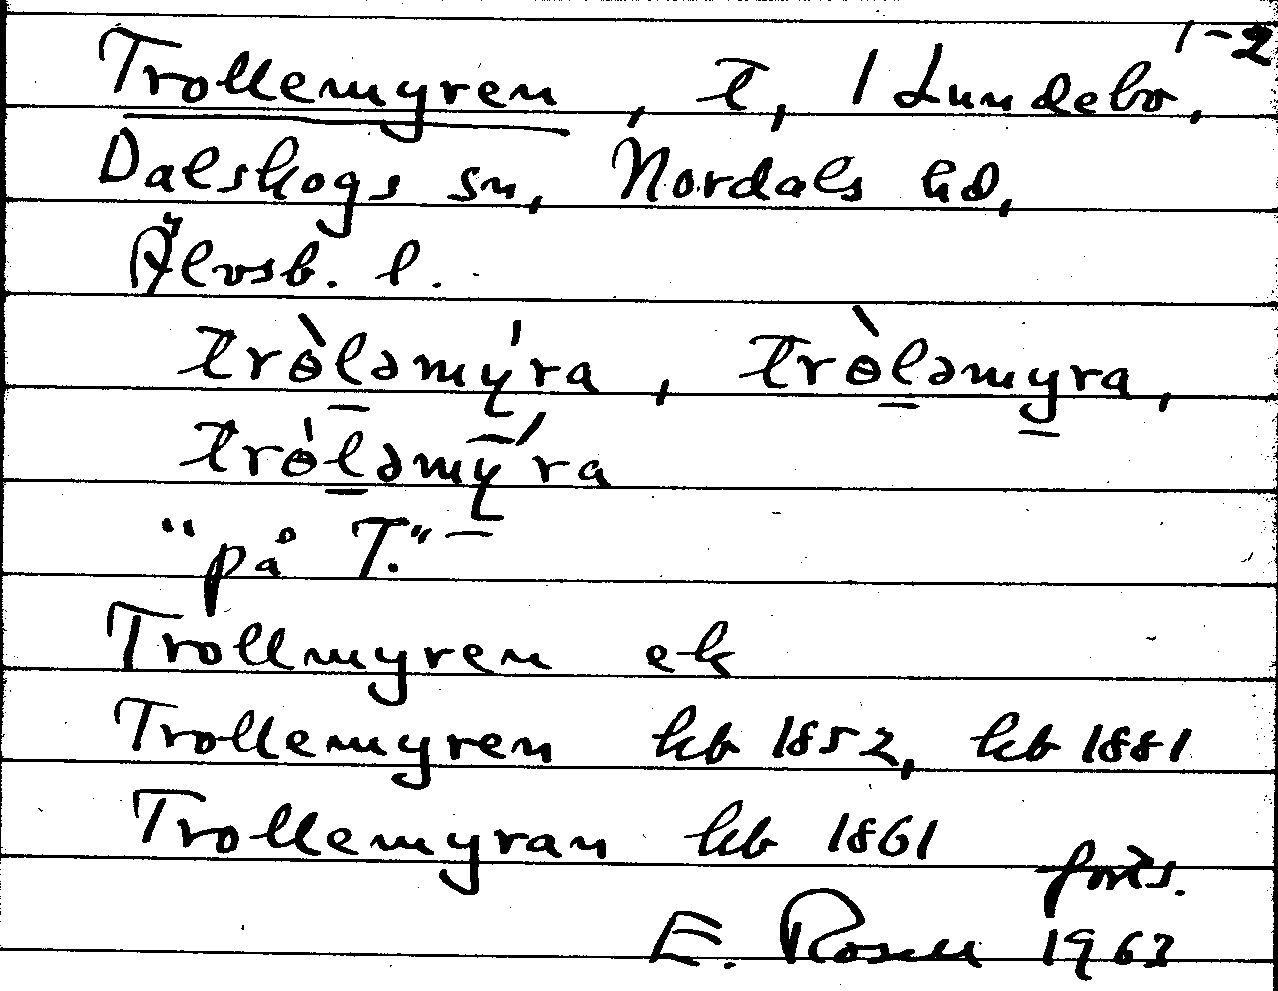 1-2
Trollemyren, t, 1 Lundebo,
Dalskogs sn, Nordals hd,
Älvsb. l.
trɵ̀l̠əmý̠ra, trɵ̀l̠əmy̠ra,
trɵ́l̠əmȳ́ra
"på T."
Trollmyren ek
Trollemyren kb 1852, kb 1881
Trollemyran kb 1861
forts.
E. Rosell 1963